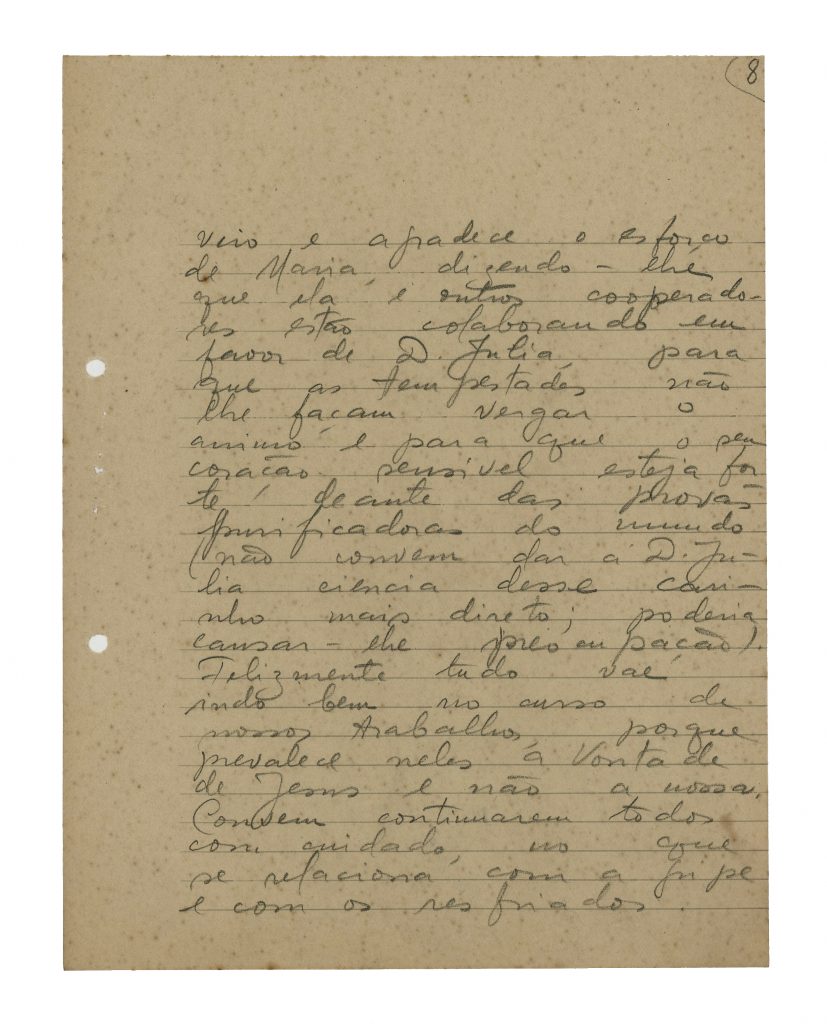 8
viro e agradece o esforço
de Maria, dizendo-lhe
que ela e outros cooperado-
res estão colaborando em
favor de D. Julia, para
que as tempestades não
lhe façam vergar o
animo e para que o seu
coração sensivel esteja for
te, deante das provas
purificadoras do mundo
(não convem dar á D. Ju-
lia ciencia desse cari-
nho mais direto; poderia
causar-lhe preocupação).
Felizmente tudo vae
indo bem no curso de
nossos trabalhos, porque
prevalece neles a Vontade
de Jesus e não a nossa.
Convem continuarem todos
com cuidado, no que
se relaciona com a gripe
e com os resfriados.